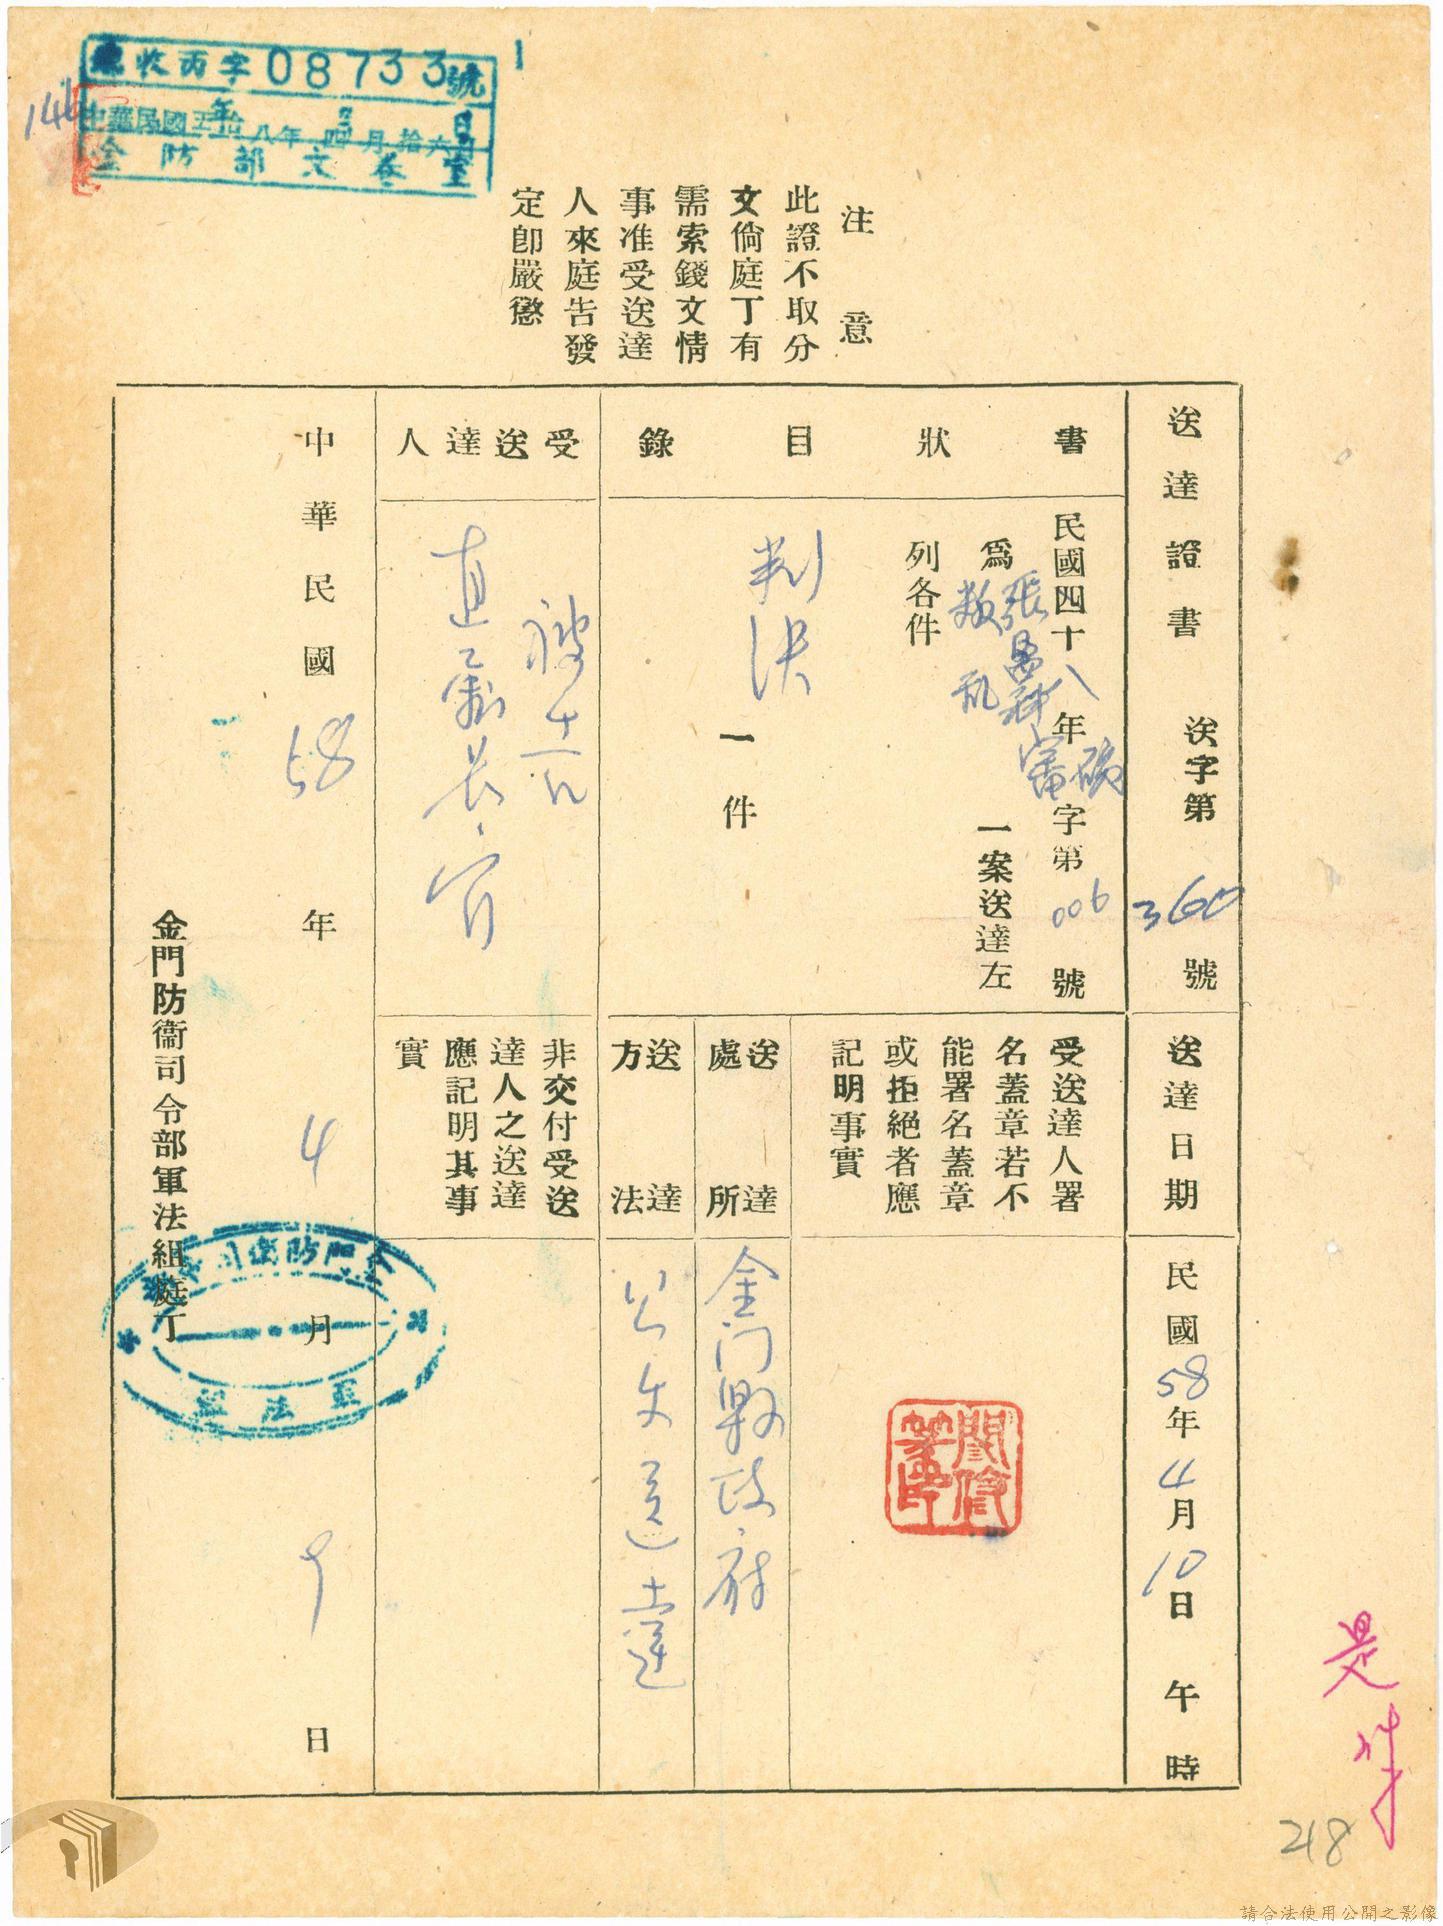 總收丙字08733號
中華民國五拾八年四月拾六日
金防部文卷室
注意
此證不取分
文倘庭丁有
需索錢文情
事准受送達
人來庭告發
定卽嚴懲
送達證書
送字第360號
送達日期
民國58年4月10日午時
書狀目錄
民國四十八年 字第006號
爲張 叛亂一案送達左
列各件
判決一件
受送達人署
名蓋章若不
能署名蓋章
或拒絕者應
記明事實
送達處所
金门縣政府
送達方法
公文送達
受送達人
被告
直屬長官
非交付受送
達人之送達
應記明其事
實
中華民國58年4月9日
金門防衞司令部軍法組庭丁
金門防衛司令部
軍法組
218
請合法使用公開之影像